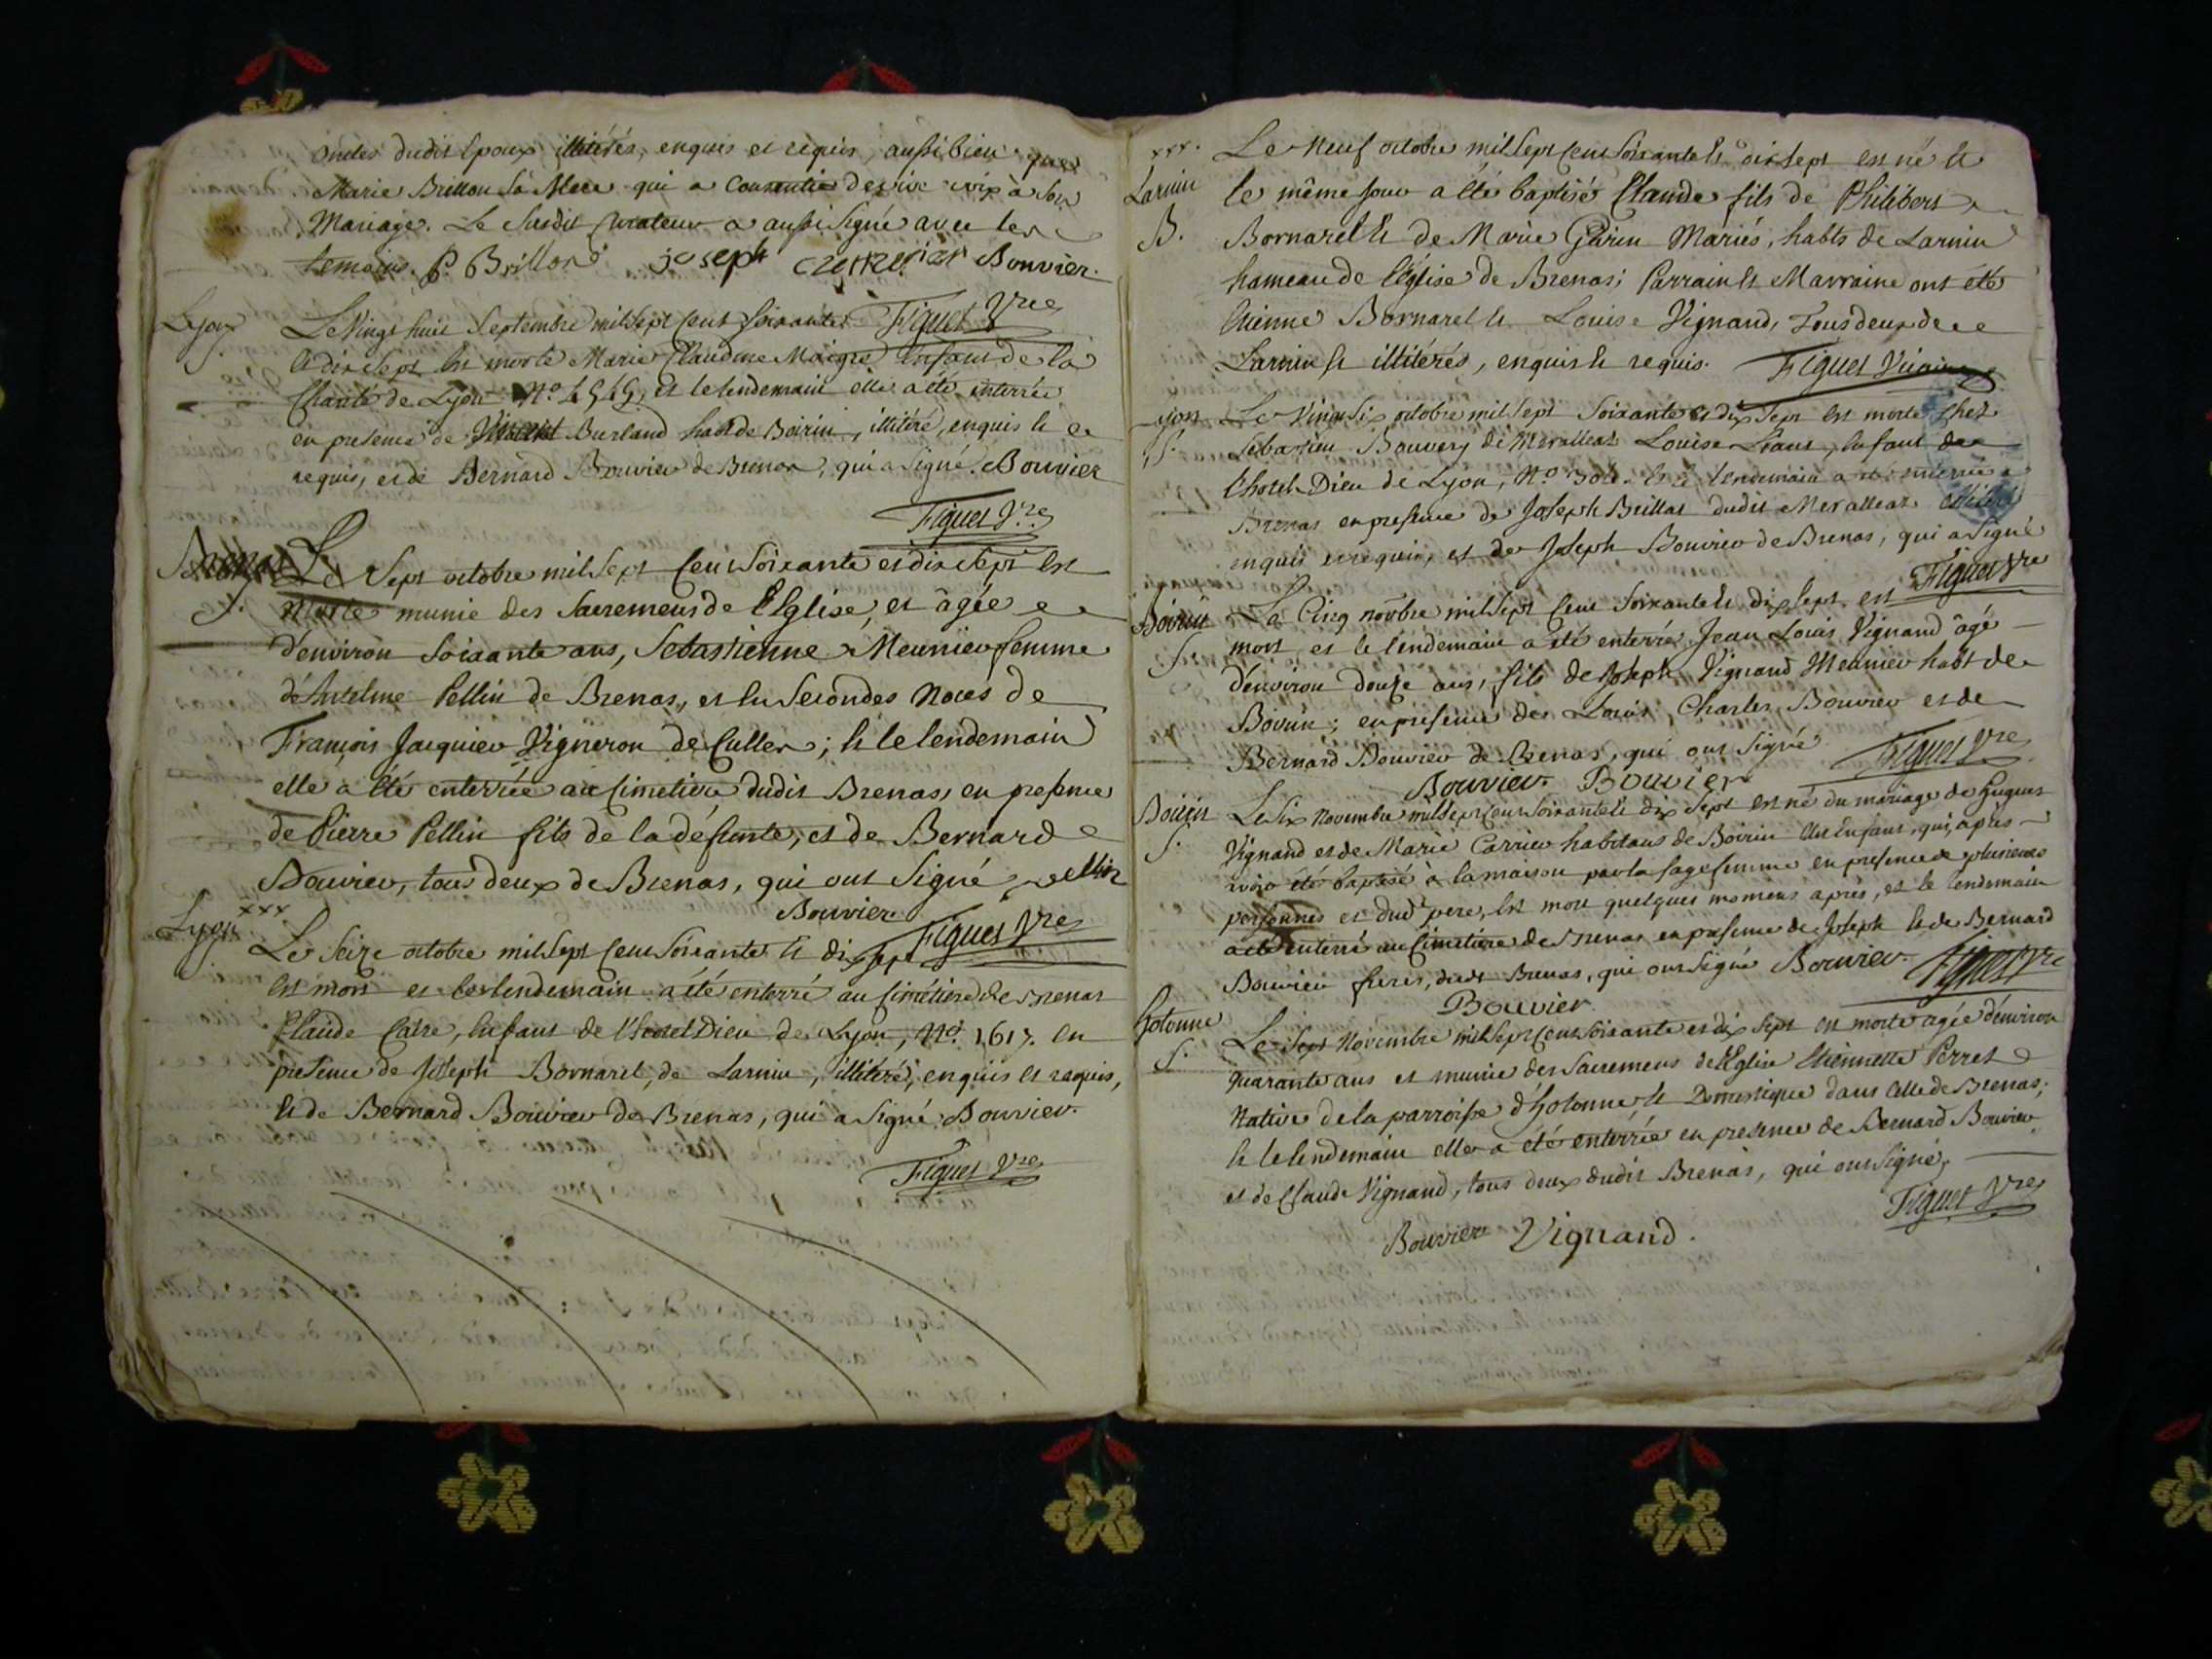 oncles dudit Epoux illitérés, enquis et requis, aussi bien que
Marie Brillon sa Mere qui a consentie de vive voix à son
Mariage. Le susdit Curateur a aussi signé avec les
temoins. P. Brillon joseph Bouvier.
Lyon
Le Vingt huit Septembre mil sept cent soixante Figuet Vre
et dix sept est morte Marie Claudine Maigre enfant de la
Charité de Lyon N.o et le lendemain elle a été enterrée
en presence de Vincent Burland habt de Boirin, illitéré, enquis et
requis, et de Bernard Bouvier de Brenas, qui a signé. Bouvier
Figuet Vre
Brenas
S.
Le Sept octobre mil sept cent soixante et dix sept est
morte munie des sacremens de l'Eglise, et âgée
d'environ soixante ans, Sebastienne Meunier femme
d'Antelme Pellin de Brenas, et en secondes Noces de
François Jacquier Vigneron de Culles; et le lendemain
elle a été enterrée au cimetiere dudit Brenas, en presence
de Pierre Pellin fils de la défunte, et de Bernard
Bouvier, tous deux de Brenas, qui ont signé pellin
Bouvier Figuet Vre
xxx
Lyon
Le seize octobre mil sept cent soixante et dix sept
est mort et le lendemain a été enterré au cimétiere de Brenas
Claude Catre, enfant de l'hotel Dieu de Lyon, N.o 1617. en
presence de Joseph Bornarel, de Larnin, illitéré, enquis et requis,
et de Bernard Bouvier de Brenas, qui a signé Bouvier.
Figuet Vre
xxx.
Larnin
B.
Le Neuf octobre mil sept cent soixante et dix sept est né et
le même jour a été baptisé Claude fils de Philibert
Bornarel et de Marie Guérin Mariés, habts de Larnin
hameau de l'église de Brenas; Parrain et Marraine ont été
Etienne Bornarel et Louise Vignand, Tous deux de
Larnin et illitérés, enquis et requis. Figuet Vicaire
Lyon
S.
Le Vingt Six octobre mil sept soixante et dix sept est morte chez
Sebastien Bouvery de Meralleat Louise, enfant de
l'hotel Dieu de Lyon, N.o et le lendemain a été enterrée a
Brenas en presence de Joseph Brillat dudit Meralleat illitéré
enquis et requis, et de Joseph Bouvier de Brenas, qui a signé
Figuet Vre
Boirin
S.
Le Cinq novbre mil sept cent soixante et dix sept est
mort et le lendemain a été enterré Jean Louis Vignand âgé
d'environ douze ans, fils de Joseph Vignand Meunier habt de
Boirin; en presence de Louis Charles Bouvier et de
Bernard Bouvier de Brenas, qui ont signé Figuet Vre
Bouvier. Bouvier
Boirin
S.
Le Six Novembre mil sept cent soixante et dix sept est né du mariage de Hugues
Vignand et de Marie Carrier habitans de Boirin un enfant, qui, après
avoir été baptisé à la maison par la sage femme en presence de plusieurs
personnes et dud. pere, est mort quelques momens après, et le lendemain
a été enterré au cimetiere de Brenas en presence de Joseph et de Bernard
Bouvier freres, dudt Brenas, qui ont signé Bouvier. Figuet Vre
Bouvier
hotonne
S.
Le Sept Novembre mil sept cent soixante et dix sept est morte agée d'environ
quarante ans et munie des sacremens de l'Eglise Etiennette Perret
Native de la parroisse d'hotonne et Domestique dans celle de Brenas;
et le lendemain elle a été enterrée en presence de Bernard Bouvier
et de Claude Vignand, tous deux dudit Brenas, qui ont signé,
Figuet Vre
Bouvier Vignand.